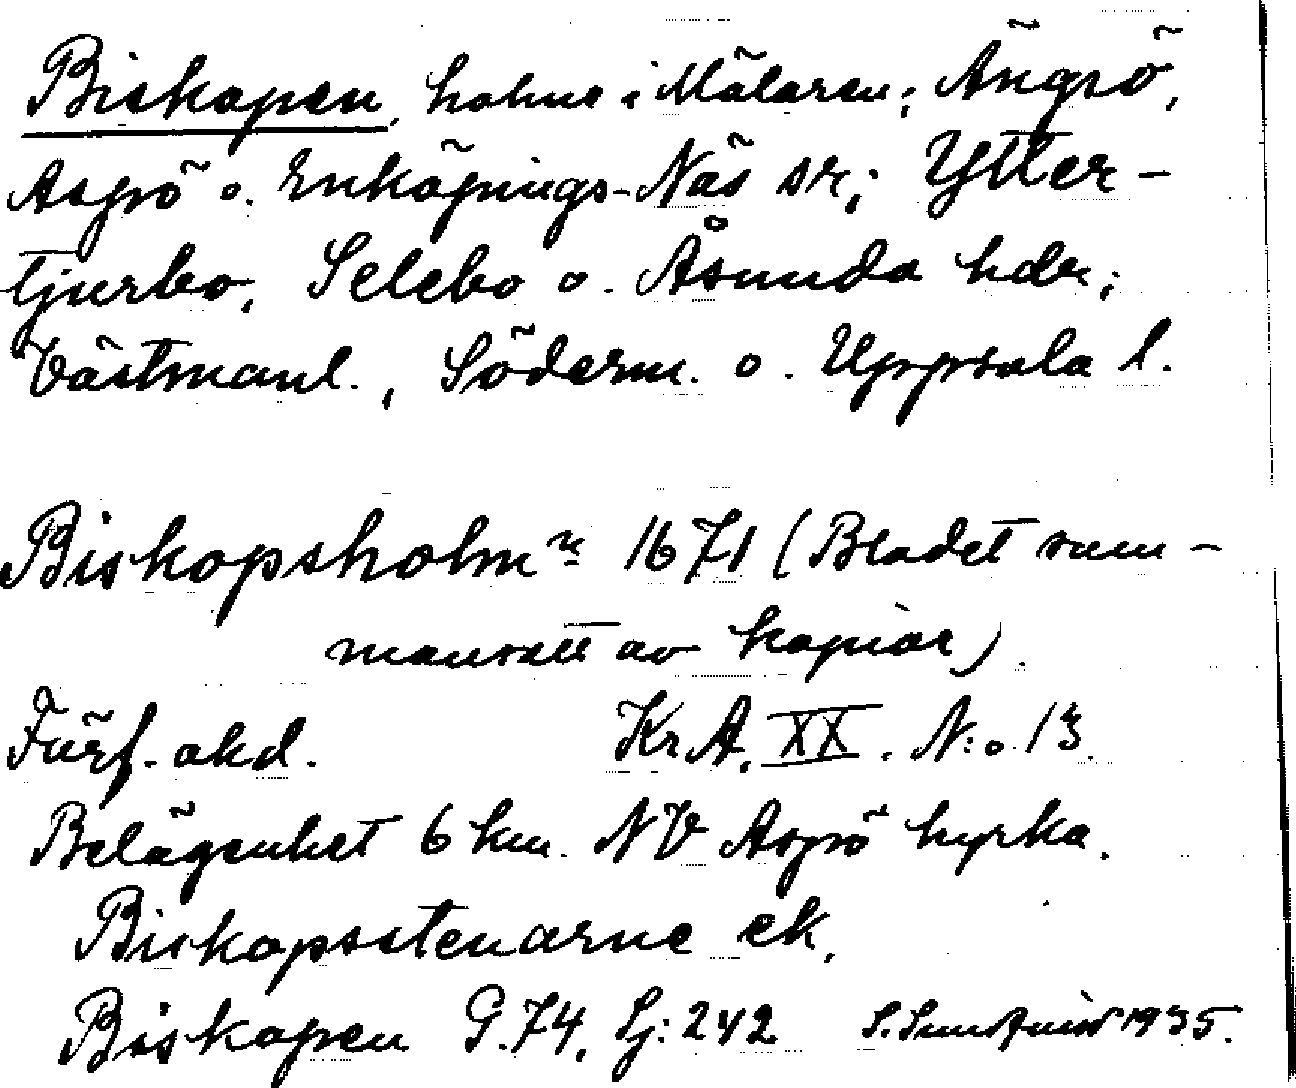 Biskopen, holme i Mälaren; Ängsö,
Aspö o. Enköpings-Näs sr; Ytter-
tjurbo, Selebo o. Åsunda hdr;
Västmanl., Söderm. o. Uppsala l.
Biskopsholmn 1671 (Bladet sam-
mansatt av kopior).
Förf. okd. Kr.A. XX. N:o 13.
Belägenhet 6 km. NV Aspö kyrka.
Biskopsstenarne ek.
Biskopen G.74. Sj:242 S. Sundquist 1935.